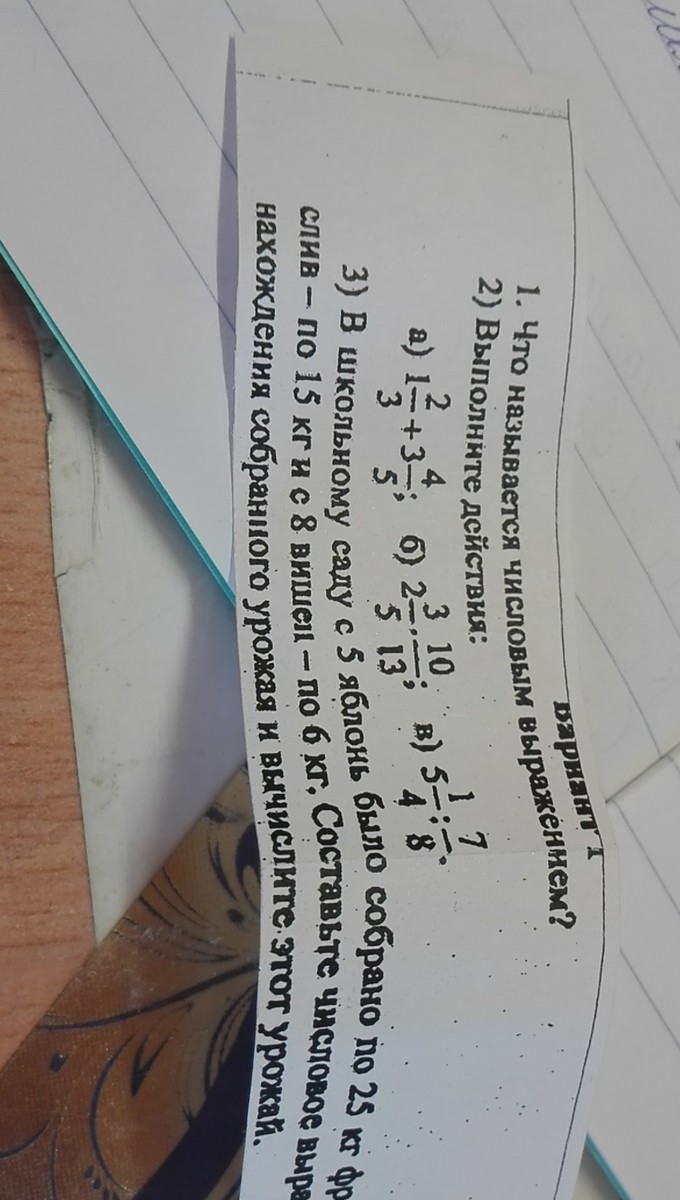 Вариант 1
1. Что называется числовым выражением?
2) Выполните действия:
а) 1 2/3 + 3 4/5; б) 2 3/5 · 10/13; в) 5 1/4 : 7/8.
3) В школьному саду с 5 яблонь было собрано по 25 кг
слив – по 15 кг и с 8 вишен – по 6 кг. Составьте числовое
нахождения собранного урожая и вычислите этот урожай.